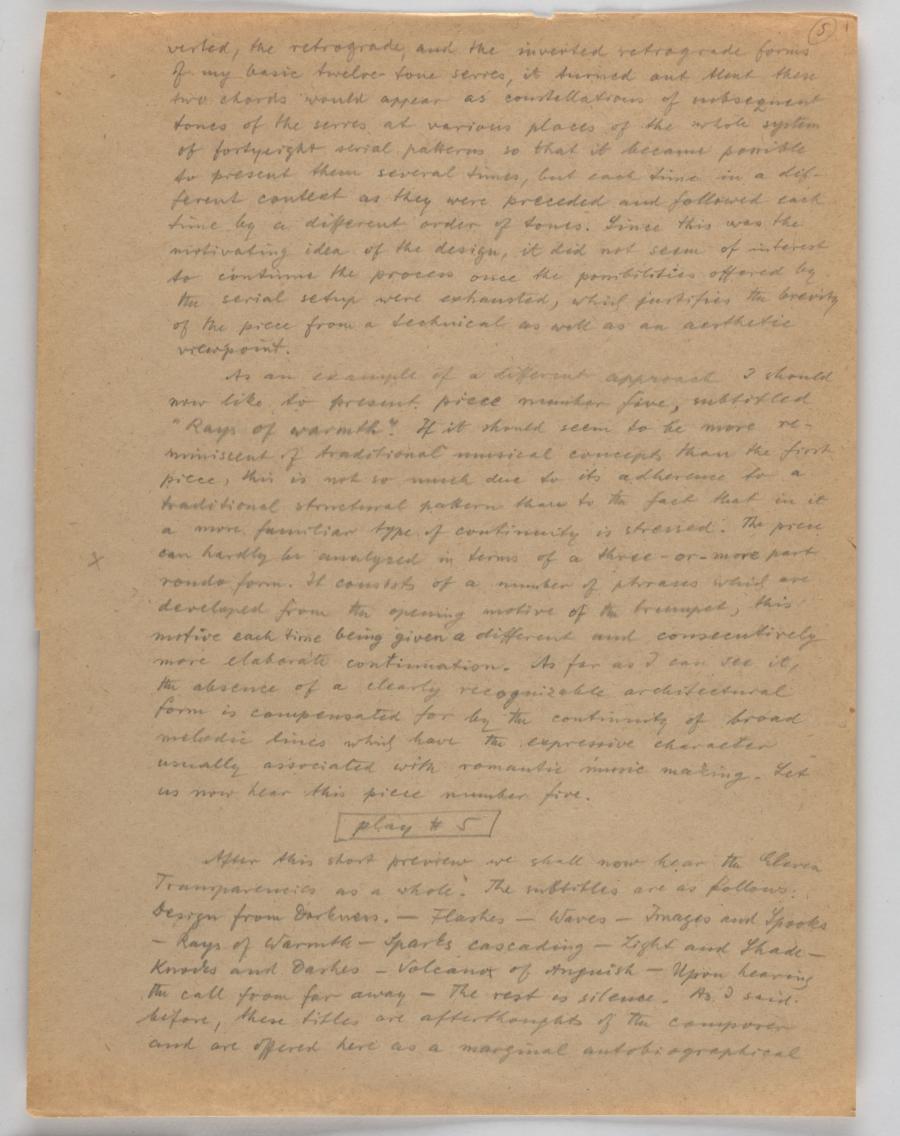 5
verted, the retrograde, and the inverted retrograde forms
of my basic twelve-tone series, it turned out that these
two chords would appear as constellations of subsequent
tones of the series at various places of the whole system
of fortyeight serial patterns so that it became possible
to present them several times, but each time in a dif-
ferent context as they were preceded and followed each
time by a different order of tones. Since this was the
motivating idea of the design, it did not seem of interest
to continue the process once the possibilities offered by
the serial setup were exhausted, which justifies the brevity
of the piece from a technical as well as an aesthetic
viewpoint.
As an example of a different approach I should
now like to present piece number five, subtitled
"Rays of warmth". If it should seem to be more re-
miniscent of traditional musical concepts than the first
piece, this is not so much due to its adherence to a
traditional structural pattern than to the fact that in it
a more familiar type of continuity is stressed. The piece
can hardly be analyzed in terms of a three-or-more part
rondo form. It consists of a number of phrases which are
developed from the opening motive of the trumpet, this
motive each time being given a different and consecutively
more elaborate continuation. As far as I can see it,
the absence of a clearly recognizable architectural
form is compensated for by the continuity of broad
melodic lines which have the expressive character
usually associated with romantic music making. Let
us now hear this piece number five.
play # 5
After this short preview we shall now hear the Eleven
Transparencies as a whole. The subtitles are as follows:
Design from Darkness. — Flashes — Waves — Images and Spooks
— Rays of Warmth — Sparks cascading — Light and Shade —
Knocks and Dashes — Volcano of Anguish — Upon hearing
the call from far away — The rest is silence. As I said
before, these titles are afterthoughts of the composer
and are offered here as a marginal autobiographical